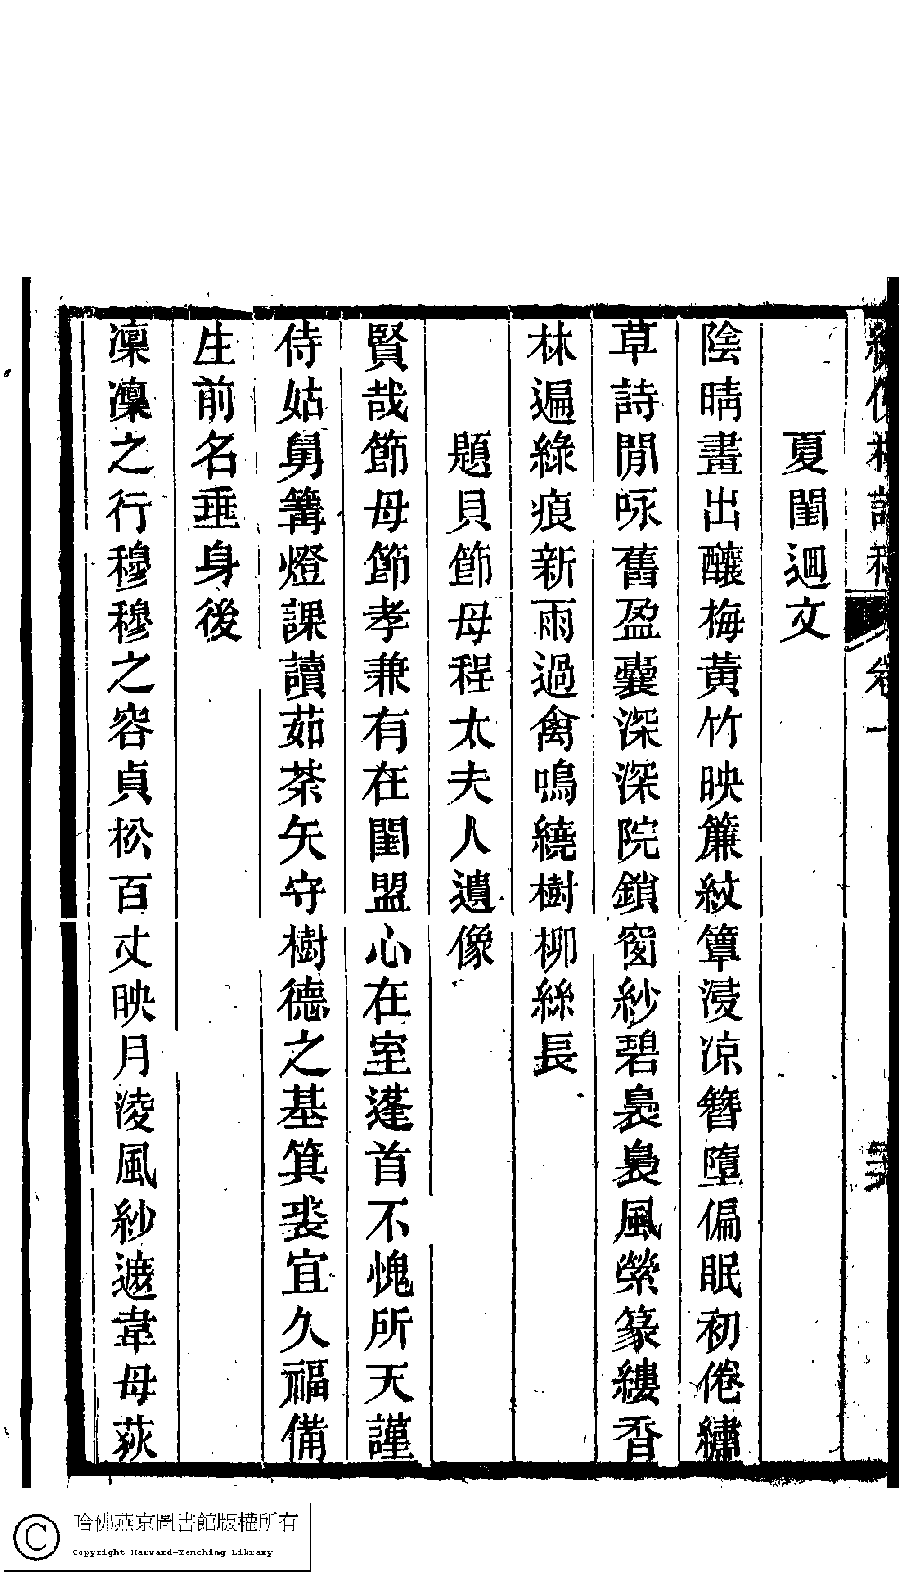 卷一
夏閨迴文
陰晴畫出釀梅黃竹映簾紋簟浸凉簪墮偏眠初倦繡
草詩閒咏舊盈囊深深院鎖窗紗碧裊裊風縈篆縷香
林遍綠痕新雨過禽鳴繞樹柳絲長
題貝節母程太夫人遺像
賢哉節母節孝兼有在閨盟心在室蓬首不愧所天謹
侍姑舅篝燈課讀茹荼矢守樹德之基箕裘宜久福備
生前名垂身後
凜凜之行穆穆之容貞松百丈映月淩風紗遮韋母荻
哈佛燕京圖書館版權所有
Copyright Harvard-Yenching Library